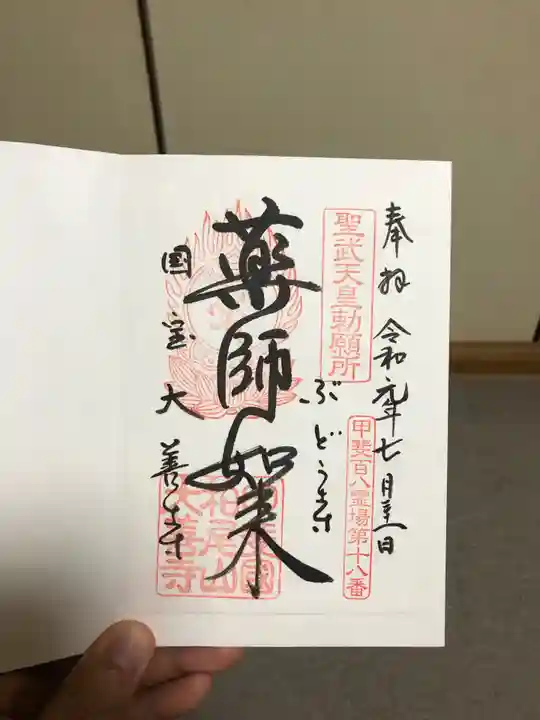 奉拝 令和元年七月吉日
聖武天皇勅願所
甲斐百八霊場第十八番
ぶどう寺
薬師如来
国宝大善寺
柏尾山
大善寺